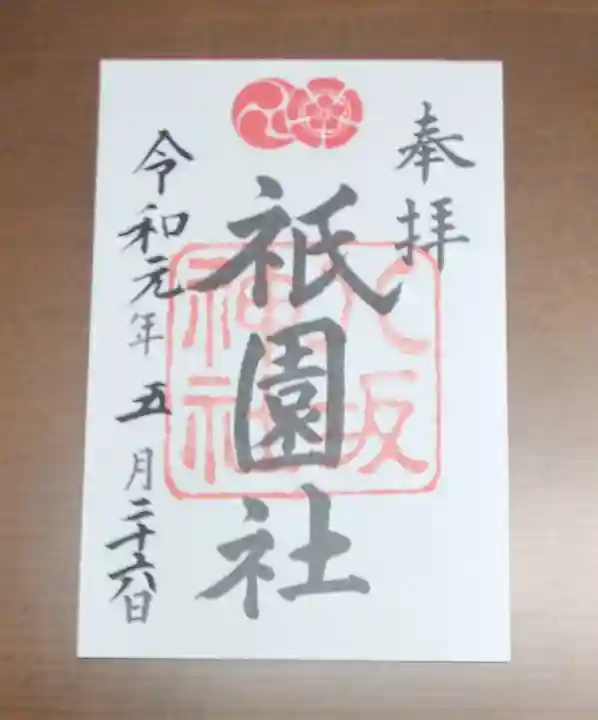 奉拝
祇園社
八坂神社
令和元年五月二十六日